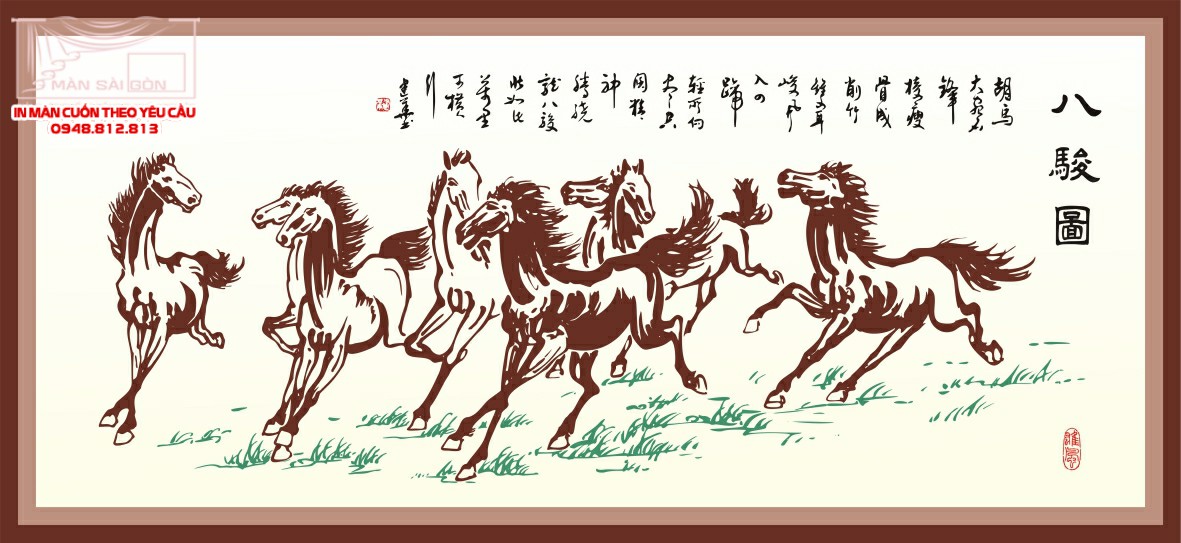 MÀN SÀI GÒN
IN MÀN CUỐN THEO YÊU CẦU
0948.812.813
八駿圖
胡馬
大宛名
鋒
棱瘦
骨成
削竹
雙耳
峻風
入四
蹄
輕所向
神
龍八駿
萬里
可橫
行